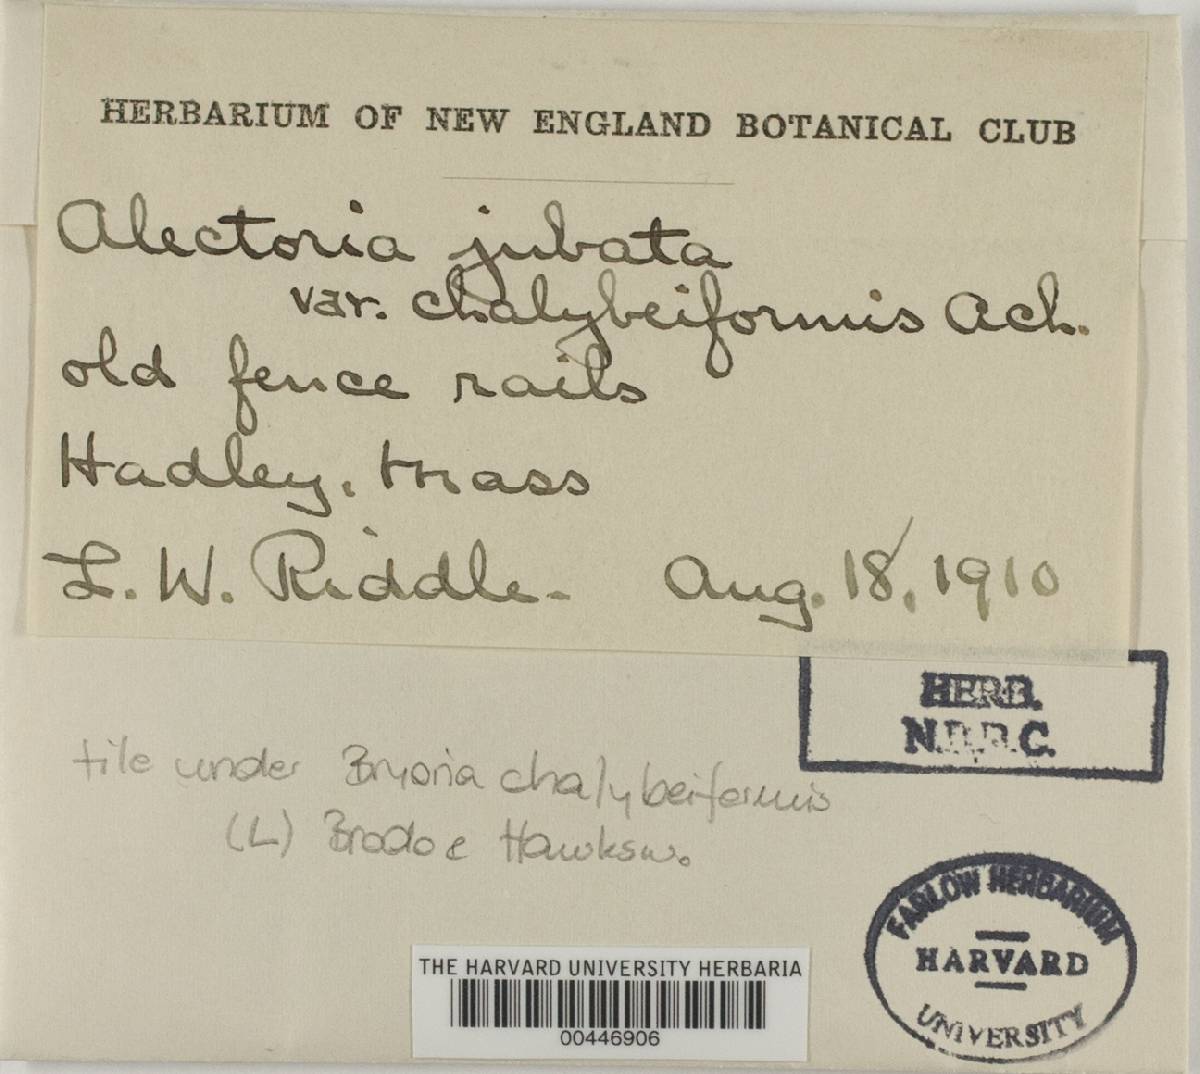 HERBARIUM OF NEW ENGLAND BOTANICAL CLUB
Alectoria jubata
var. chalybeiformis Ach.
old fence rails
Hadley, Mass
L. W. Riddle. Aug. 18, 1910
HERB.
N.E.B.C.
file under Bryoria chalybeiformis
(L) Brodo & Hawksw.
FARLOW HERBARIUM
HARVARD
UNIVERSITY
THE HARVARD UNIVERSITY HERBARIA
00446906